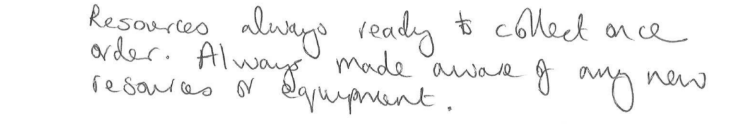 Resources always ready to collect once
order. Always made aware of any new
resources or equipment.